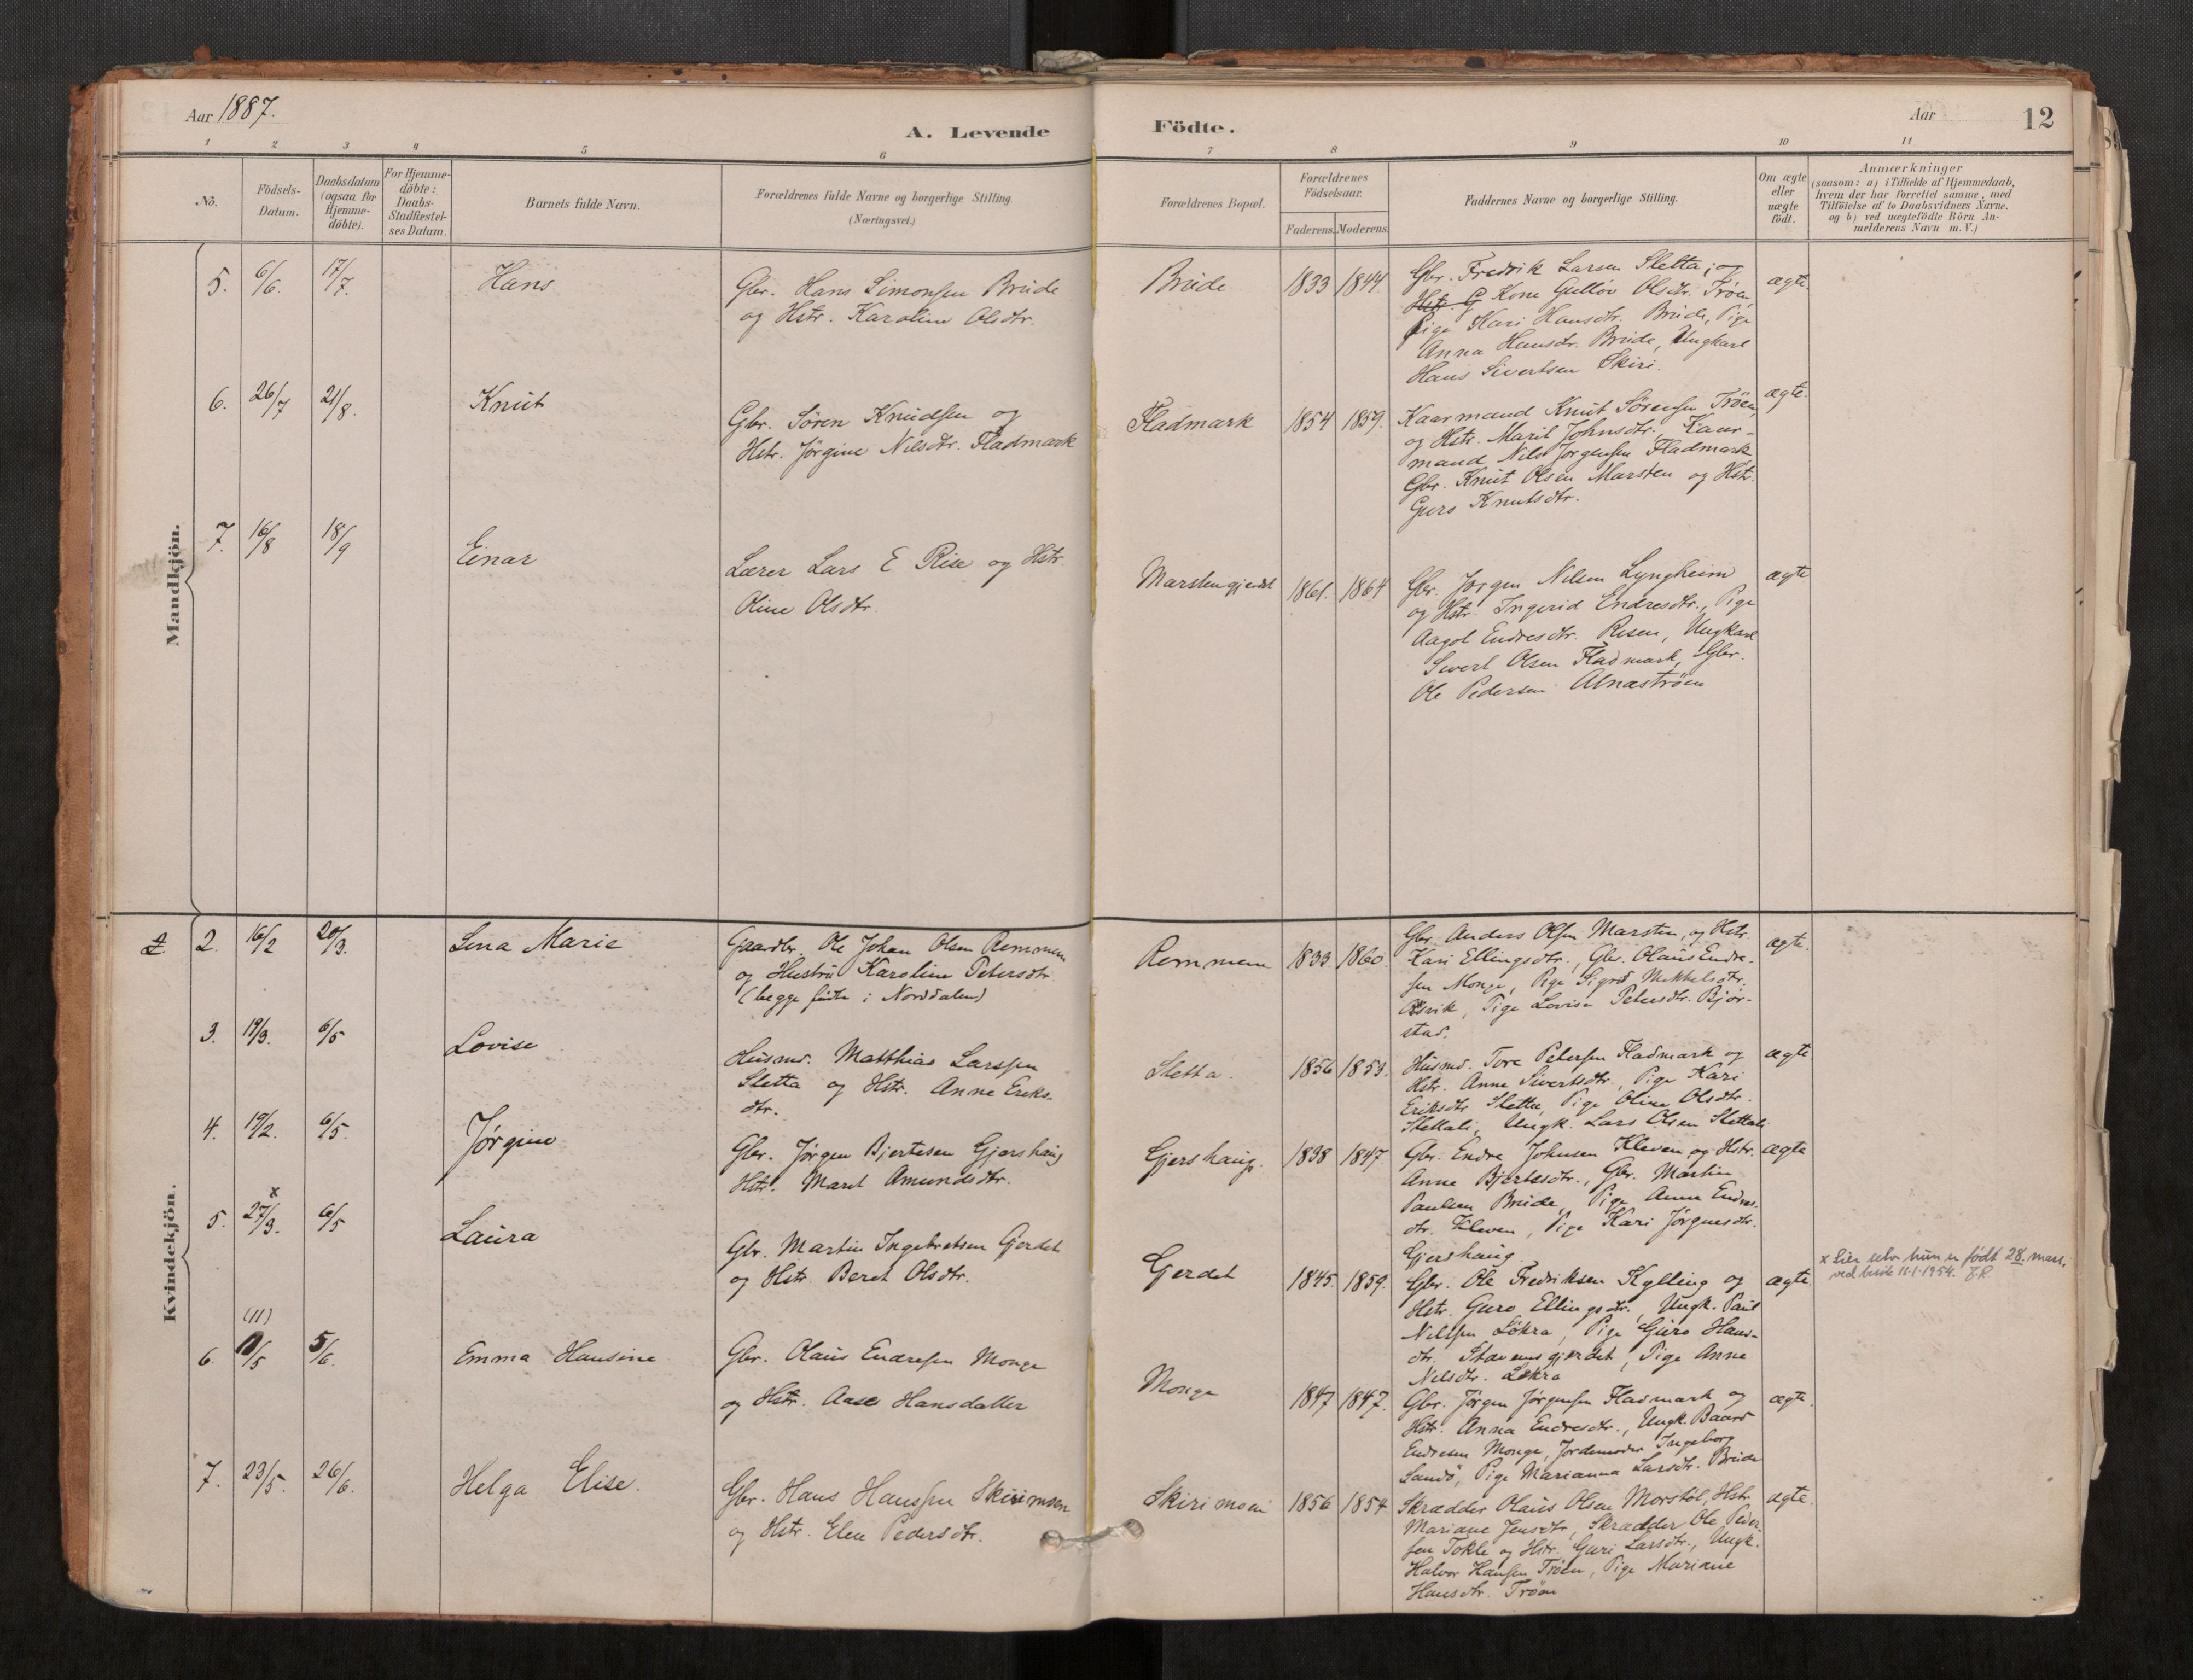 Aar 1887.
A. Levende Födte.
Aar
12
1 2 3 4 5 6 7 8 9 10 11
Nö.
Födsels-
Datum.
Daabsdatum
(ogsaa for
Hjemme-
döbte).
For Hjemme-
döbte:
Daabs-
Stadfæstel-
ses Datum.
Barnets fulde Navn.
Forældrenes fulde Navne og borgerlige Stilling.
(Næringsvei.)
Forældrenes Bopæl.
Forældrenes
Födselsaar.
Faderens. Moderens.
Faddernes Navne og borgerlige Stilling.
Om ægte
eller
uægte
födt.
Anmærkninger
(saasom: a) i Tilfælde af Hjemmedaab,
hvem der har forrettet samme, med
Tilföielse af to Daabsvidners Navne.
og b) ved uægtefödte Börn An-
melderens Navn m.V.)
Mandkjön.
5. 6/6. 17/7. Hans
Gbr. Hans Simonsen Brude
og Hstr. Karoline Olsdtr.
Brude 1833 1844.
Gbr. Fredrik Larsen Sletta; og
Hstr. G Kone Gulløv Olsdtr. Trøen,
Pige Kari Hansdtr. Brude, Pige
Anna Hansdtr. Brude, Ungkarl
Hans Sivertsen Skiri.
ægte.
6. 26/7 21/8. Knut
Gbr. Søren Knudsen og
Hstr. Jørgine Nilsdtr. Fladmark
Fladmark 1854 1859.
Kaarmand Knut Sørensen Trøen,
og Hstr. Marit Johnsdtr., Kaar-
mand Nils Jørgensen Fladmark
Gbr. Knut Olsen Marsten og Hstr.
Guro Knutsdtr.
ægte.
7. 16/8 18/9 Einar
Lærer Lars E. Rise og Hstr.
Oline Olsdtr.
Marstengjerdet 1861. 1864
Gbr. Jørgen Nilsen Lyngheim
og Hstr. Ingerid Endresdtr., Pige
Aagot Endresdtr. Risen, Ungkarl
Sivert Olsen Fladmark, Gbr.
Ole Pedersen Alnæstrøen
ægte
Kvindekjön.
2. 2. 16/2 20/3. Lina Marie
Gaardbr. Ole Johan Olsen Remmem
og Hustru Karoline Petersdtr.
(begge fødte i Norddalen)
Remmem 1833. 1860.
Gbr. Anders Olsen Marsten, og Hstr.
Kari Ellingsdtr., Gbr. Olaus Endre-
sen Monge, Pige Sigrid Mikkelsdtr.
Pige Lovise Petersdtr. Bjør-
stad.
ægte.
3. 19/3. 6/5 Lovise
Husmd. Matthias Larssen
Sletta og Hstr. Anne Ereks-
dtr.
Sletta. 1856 1853.
Husmd. Tore Petersen Fladmark og
Hstr. Anne Sivertsdtr., Pige Kari
Eriksdtr Sletta, Pige Olina Olsdtr.
Slettali, Ungk. Lars Olsen Slettali
ægte
4. 19/2. 6/5. Jørgine
Gbr. Jørgen Bjertesen Gjershaug
Hstr. Maret Amundsdtr.
Gjershaug. 1838 1847
Gbr. Endre Johnsen Kleven og Hstr.
Anne Bjertesdtr., Gbr. Martin
Paulsen Brude, Pige Anne Endres-
dtr. Kleven, Pige Kari Jørgensdtr.
Gjershaug
ægte
x
5. 27/3. 6/5 Laura
Gbr. Martin Ingebretsen Gjerdet
og Hstr. Beret Olsdtr.
Gerdet 1845. 1859.
Gbr. Ole Fredriksen Kylling og
Hstr. Guro Ellingsdtr., Ungk. Paul
Nilssen Løkra, Pige Guro Hans-
dtr. Stavemsgjerdet, Pige Anne
Nilsdtr. Løkra
ægte.
x Sier selv hun er født 28. mars.
ved besøk 11-1-1954.
(11)
6. 11/5 5/6. Emma Hansine
Gbr. Olaus Endresen Monge
og Hstr. Aase Hansdatter
Monge 1847 1847.
Gbr. Jørgen Jørgensen Fladmark og
Hstr. Anna Endresdtr., Ungk. Baard
Endresen Monge, Jordemoder Ingeborg
Sandø, Pige Marianna Larsdtr. Brude
ægte.
7. 23/5. 26/6. Helga Elise.
Gbr. Hans Hanssen Skirimoen
og Hstr. Elen Pedersdtr.
Skirimoen 1856 1854
Skrædder Olaus Olsen Morstøl, Hstr.
Mariane Jensdtr., Skrædder Ole Peder-
sen Tokle og Hstr. Guri Larsdtr., Ungk.
Halvor Hansen Trøen, Pige Mariane
Hansdtr. Trøen
ægte.